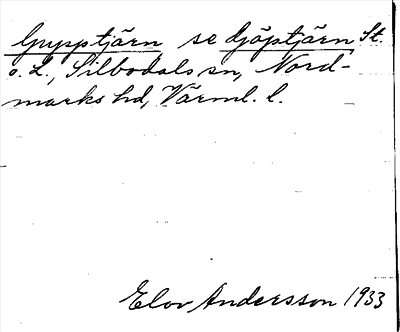 Gypptjärn se djöptjärn St.
o. L., Silbodals sn, Nord-
marks hd, Värml. l.
Elov Andersson 1933